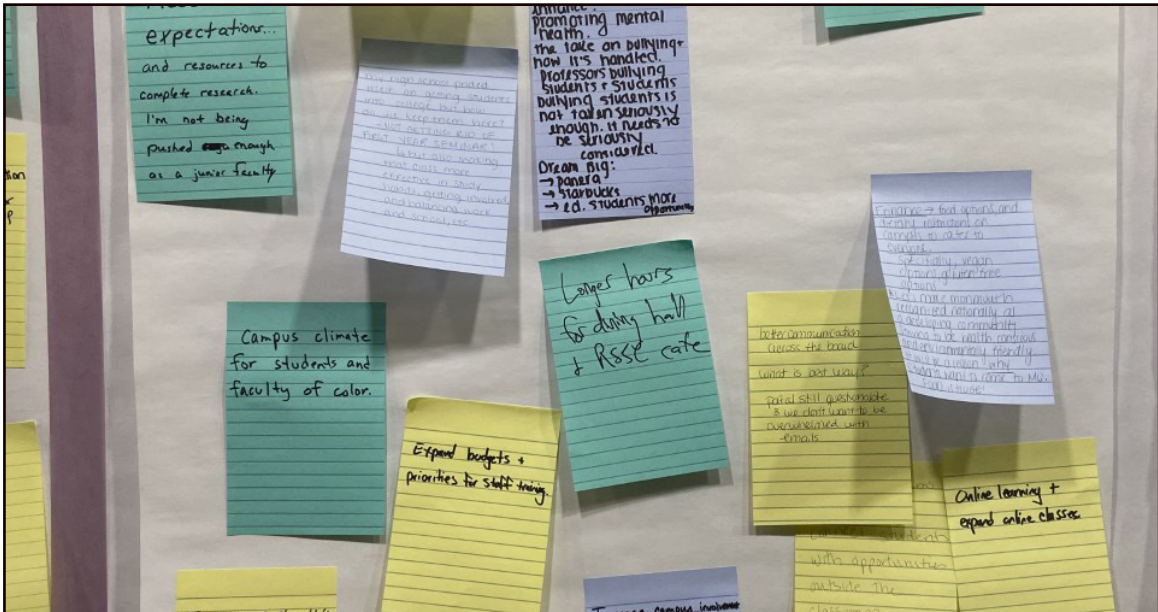 expectations...
and resources to
complete research.
I'm not being
pushed enough
as a junior faculty
high school prided
itself on getting students
into college but how
do we keep them here?
GETTING RID OF
FIRST YEAR SEMINAR!
but also making
that class more
effective in study
habits, getting involved,
and balancing work
and school, etc.
promoting mental
health.
the take on bullying +
how it's handled.
professors bullying
students + students
bullying students is
not taken seriously
enough. it needs to
be seriously
considered.
Dream Big:
→ panera
→ starbucks
→ ed. students more
opportunities
Campus climate
for students and
faculty of color.
Expand budgets +
priorities for staff training.
Longer hours
for dining hall
+ RSSE cafe
better communication
across the board
what is best way?
portal still questionable
& we don't want to be
overwhelmed with
emails
Enhance → food options and
dietary restrictions on
campus to cater to
everyone.
specifically, vegan
options, gluten free
options
make monmouth
recognized nationally as
a developing community
trying to be health conscious
and environmentally friendly
would be a reason why
want to come to MU.
Online learning +
expand online classes
connect students
with opportunities
outside the
classroom
campus involvement